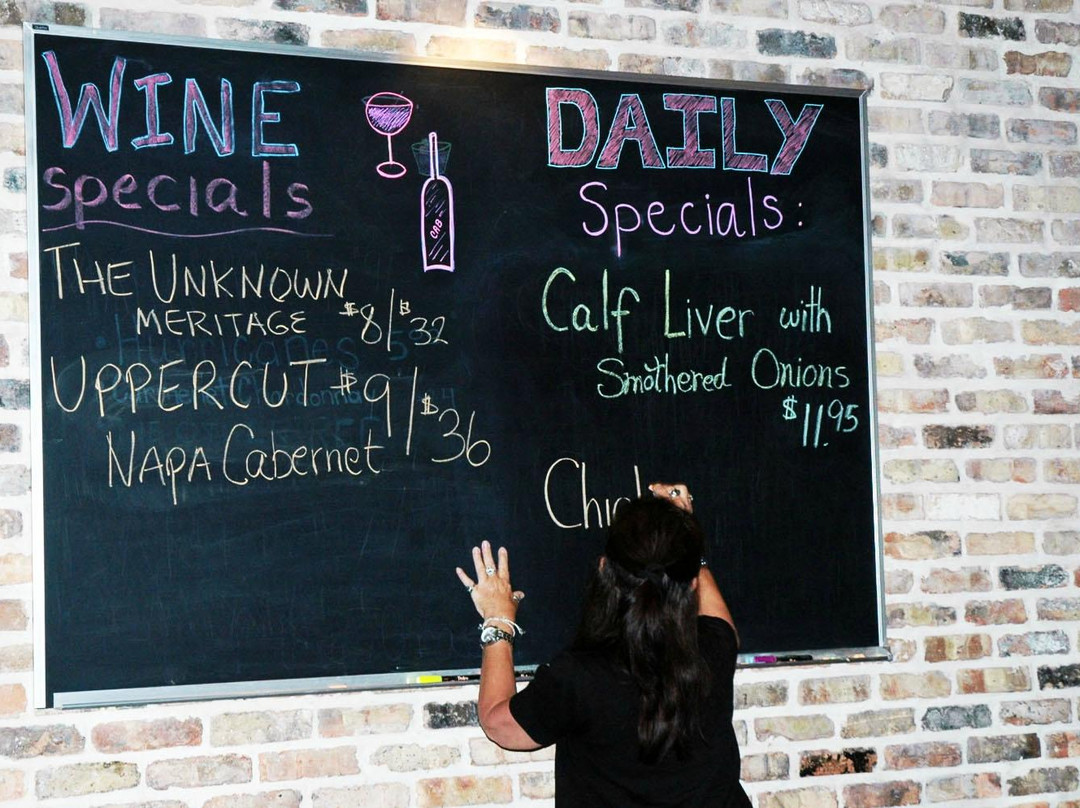 WINE
specials
THE UNKNOWN
MERITAGE $8/$32
UPPERCUT $9/$36
NAPA Cabernet
CAB
DAILY
Specials:
Calf Liver with
Smothered Onions
$11.95
Chic